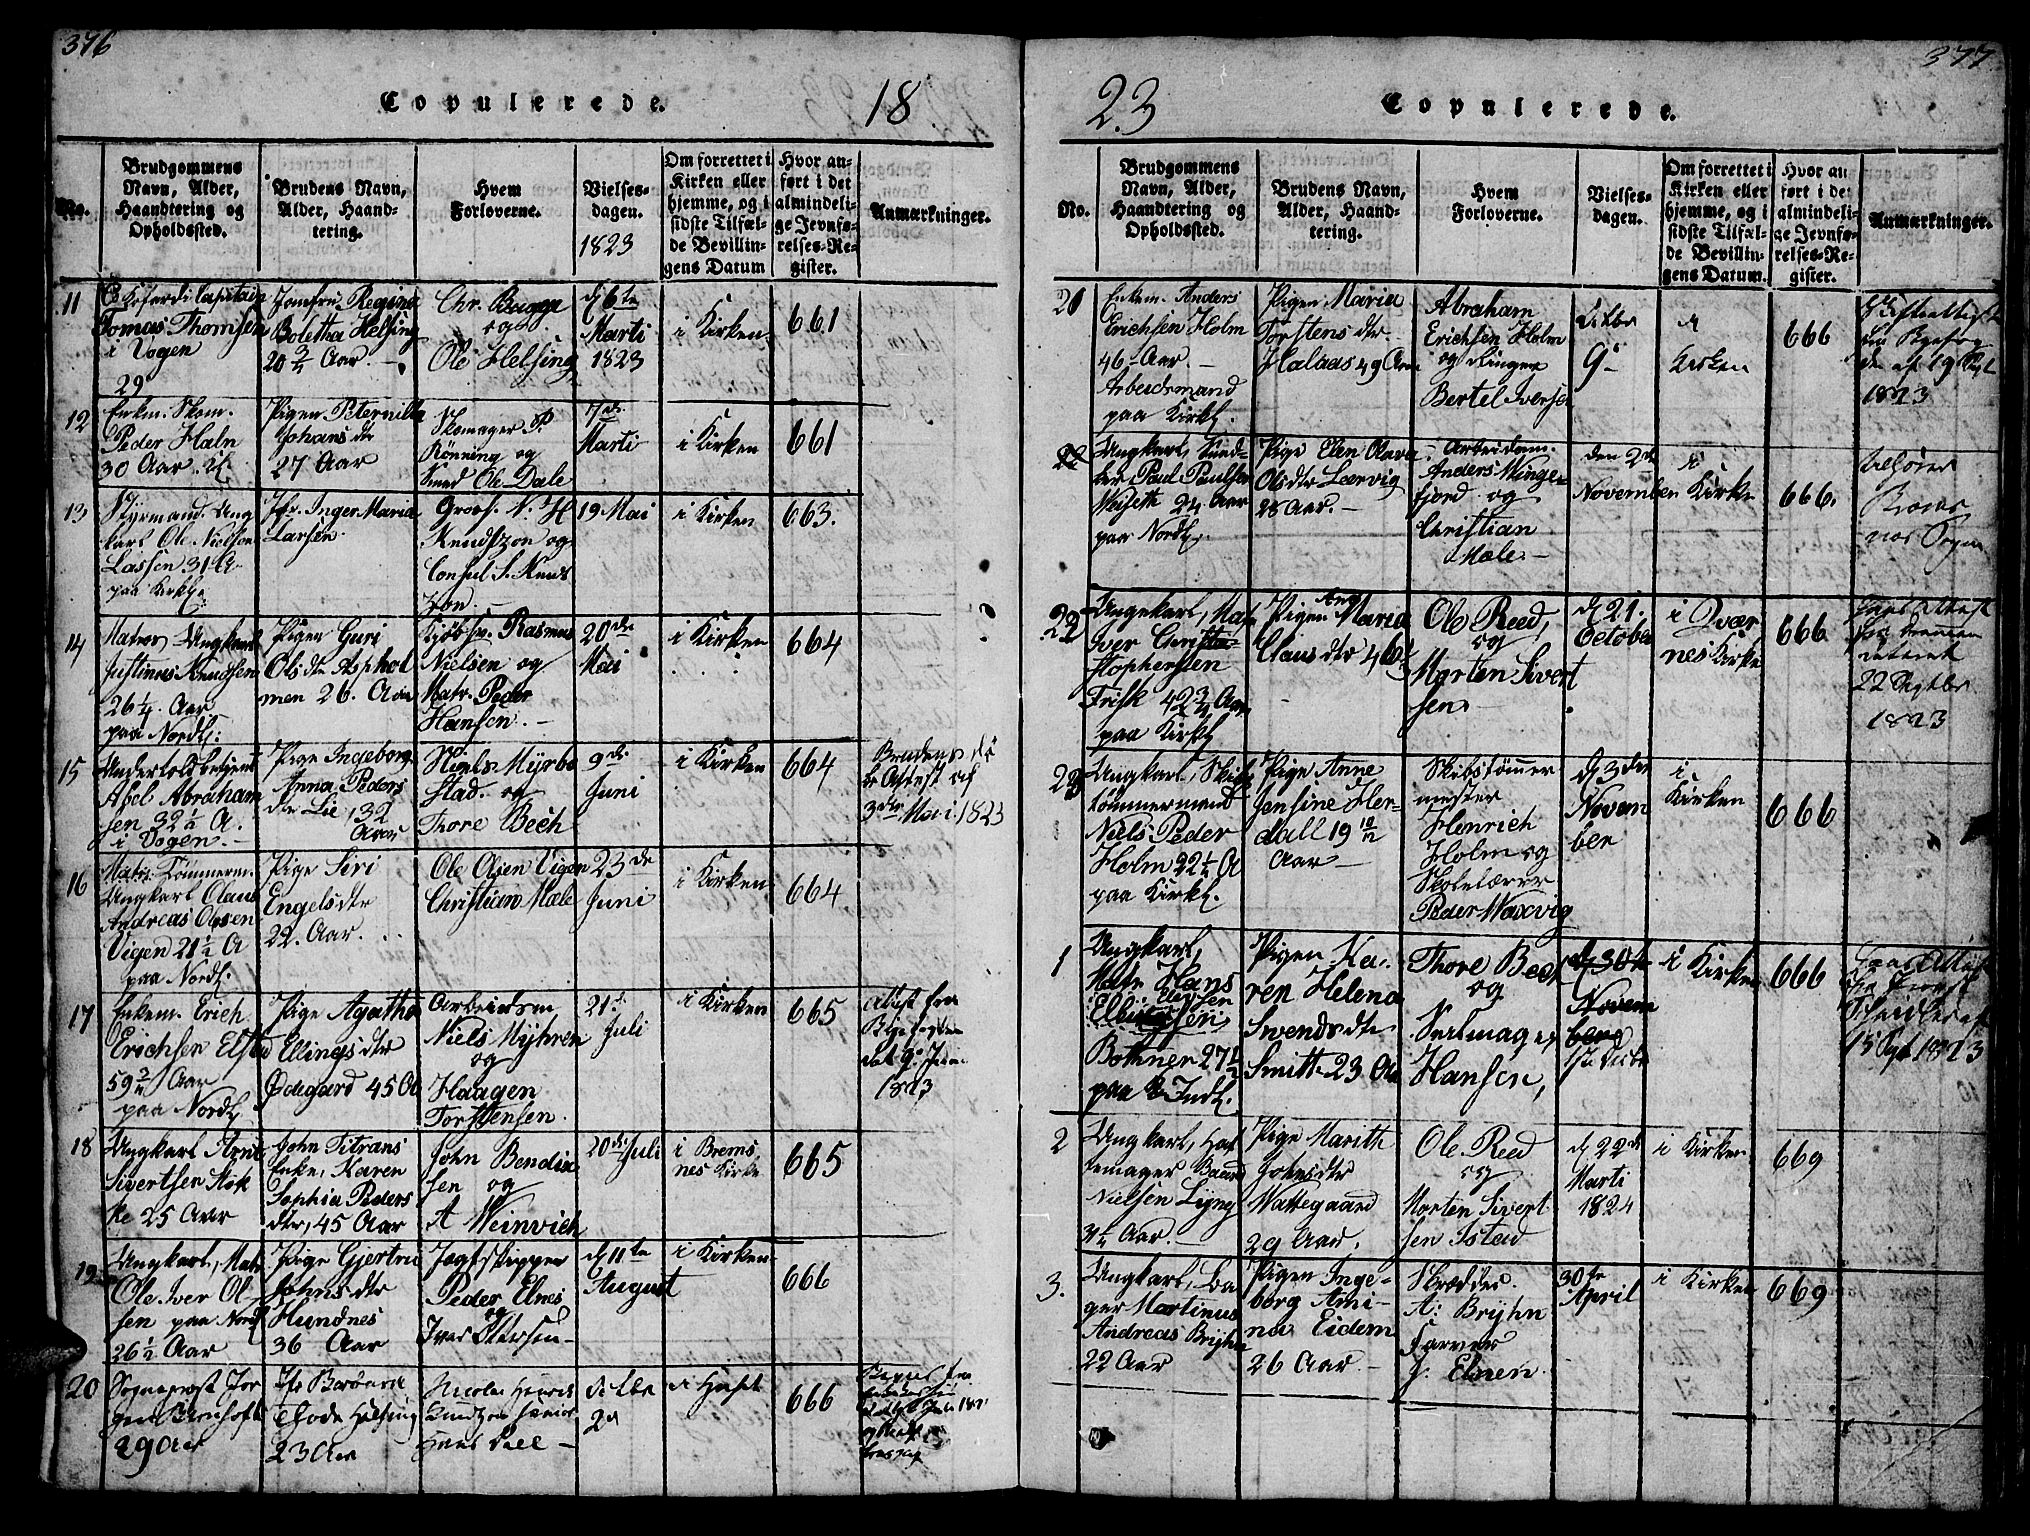 376
Copulerede.
18
No.
Brudgommens
Navn, Alder,
Haandtering og
Opholdssted.
Brudens Navn,
Alder, Haand-
tering.
Hvem
Forloverne.
Vielses-
dagen.
1823
Om forrettet i
Kirken eller
hjemme, og i
sidste Tilfæl-
de Bevillin-
gens Datum
Hvor an-
ført i det
almindeli-
ge Jevnfø-
relses-Re-
gister.
Anmærkninger.
11
Capitain
Tomas Thomsen
i Vogen
29
Jomfru Regina
Boletha Helsing
20 3/4 Aar.
Chr. Bugge
og
Ole Helsing
d 6te
Marti
1823
i Kirken
661
12
Enkem. Skom.
Peder Haln
30 Aar.
Pigen Peternille
Johans dtr
27 Aar
Skomager P.
Rønning og
Smed Ole Dale
7de
Marti
i Kirken
661
13
Styrmand. Ung
karl Ole Nielsen
Lassen 31
paa Kirkl.
Jfr. Inger Maria
Larsen
Gros. N. H.
Knudtzon og
Consul S. Knud
zon.
19 Mai
i Kirken
663.
14
Matros Ungkarl
Justinus Knudsen
26 1/4. Aar
paa Nordl:
Pigen Guri
Olsdtr Asphol
men 26. Aar
Kjøbsv. Rasmus
Nielsen og
Matr. Peder
Hansen.
20de
Mai
i Kirken
664
15
Undertoldbetjent
Abel Abraham
sen 32 1/2 A.
i Vogen.
Pige Ingeborg
Anna Peders
dtr Lie 32
Aar
Niels Myrbo
stad. og
Thore Bech
9de
Juni
i Kirken
664
Brudens
Attest af
3die Mai 1823
16
Matr. Tømmerm.
Ungkarl Olaus
Andreas Olsen
Vigen 21 1/2 A
paa Nordl.
Pige Siri
Engelsdtr
22. Aar.
Ole Olsen Vigen
Christian Mæle
23de
Juni
i Kirken
664
17
Enkem. Erich
Erichsen Elstad
59 3/4 Aar
paa Nordl
Pige Agatha
Ellings dtr
Ødegaard 45 Aa
Arbeidsm
Niels Myhren
og
Haagen
Torstensen.
21de
Juli
i Kirken
665
Attest fra
Byefogden
dat 9
1823
18
Ungkarl Arnt
Sivertsen Stok
ke 25 Aar
John Titrans
Enke, Karen
Sophia Peders
dtr, 45 Aar
John Bendix
sen og
A Weinvich
20de Juli
i Brems
nes Kirke
665
19
Ungkarl, Matr
Ole Iver Ol-
sen paa Nordl
26 1/2 Aar
Pige Gjertru
Johns dtr
Hundnes
36 Aar
Jagtskipper
Peder Elnes
og
Iver Ottersen
d 11te
August
i Kirken
666
20
Sogneprest Jør
gen
29 Aar
Jfr
Thode Helsing
23 Aar
Nicolai Henrik
Knudtzon senior
Hans
Octbr
2d
i Huset
666

377
23
Copulerede.
No.
Brudgommens
Navn, Alder,
Haandtering og
Opholdssted.
Brudens Navn,
Alder, Haand-
tering.
Hvem
Forloverne.
Vielses-
dagen.
Om forrettet i
Kirken eller
hjemme, og i
sidste Tilfæl-
de Bevillin-
gens Datum.
Hvor an
ført i det
almindeli-
ge Jevnfø-
relses-Re-
gister.
Anmærkninger.
Enkem. Anders
Erichsen Holm
46. Aar.
Arbeidsmand
paa Kirkl.
Pigen Maria
Torstens dtr.
Halaas 49 Aar
Abraham
Erichsen Holm
og Ringer
Bertel Iversen
Octbr
9
i
Kirken
666
1823
Ungkarl,
Paul Paulsen
Meiseth 24 Aar
paa Nordl.
Pige Elen Olava
Olsdtr Lærvig
28 Aar.
Arbeidsm.
Anders Winge-
fjord og
Christian
Mæle.
den 2de
November
i
Kirke
666.
22
Ungekarl, Mat
Iver Christo
stophersen
Frisk 42 3/4 Aar
paa Kirkl
Pigen Ane Maria
Claus dtr
Ole Reed,
og
Morten Sivert
sen
d 21.
October
i Qvær
nes Kirke
666
22 Septbr
1823
23
Ungkarl, Skibs
tømmermand
Niels Peder
Holm 22 1/2 A
paa Kirkl.
Pige Anne
Jensine Her-
dall 19 10/12
Aar
Skibstømmer
mester
Henrich
Holm og
Skolelærer
Peder Waxvig
d 3die
Novem
ber
i
Kirken
666
1
Ungkarl,
Matr Hans
Bothner 27 1/2
paa Indl.
Pigen Ka-
ren Helena
Swendsdtr
Smitt 23 Aa
Thore Bech
og
Seilmager
Hansen,
d 30te
Novem
ber
i Kirken
666
15 Sept 1823
2
Ungkarl, Hat
temager Baard
Nielsen Lyng
Aar.
Pige Marith
Johnsdtr
Wattegaard
29 Aar.
Ole Reed
og
Morten Sivert
sen Istad
d 22de
Marti
1824
i Kirken
669
3.
Ungkarl, Ba
ger Martinus
Andreas Brijhn
22 Aar
Pigen Inge-
borg Ami-
na Eidem
26 Aar.
Skrædder
A: Brijhn
Farver
J. Elnen.
30te
April
i Kirken
669